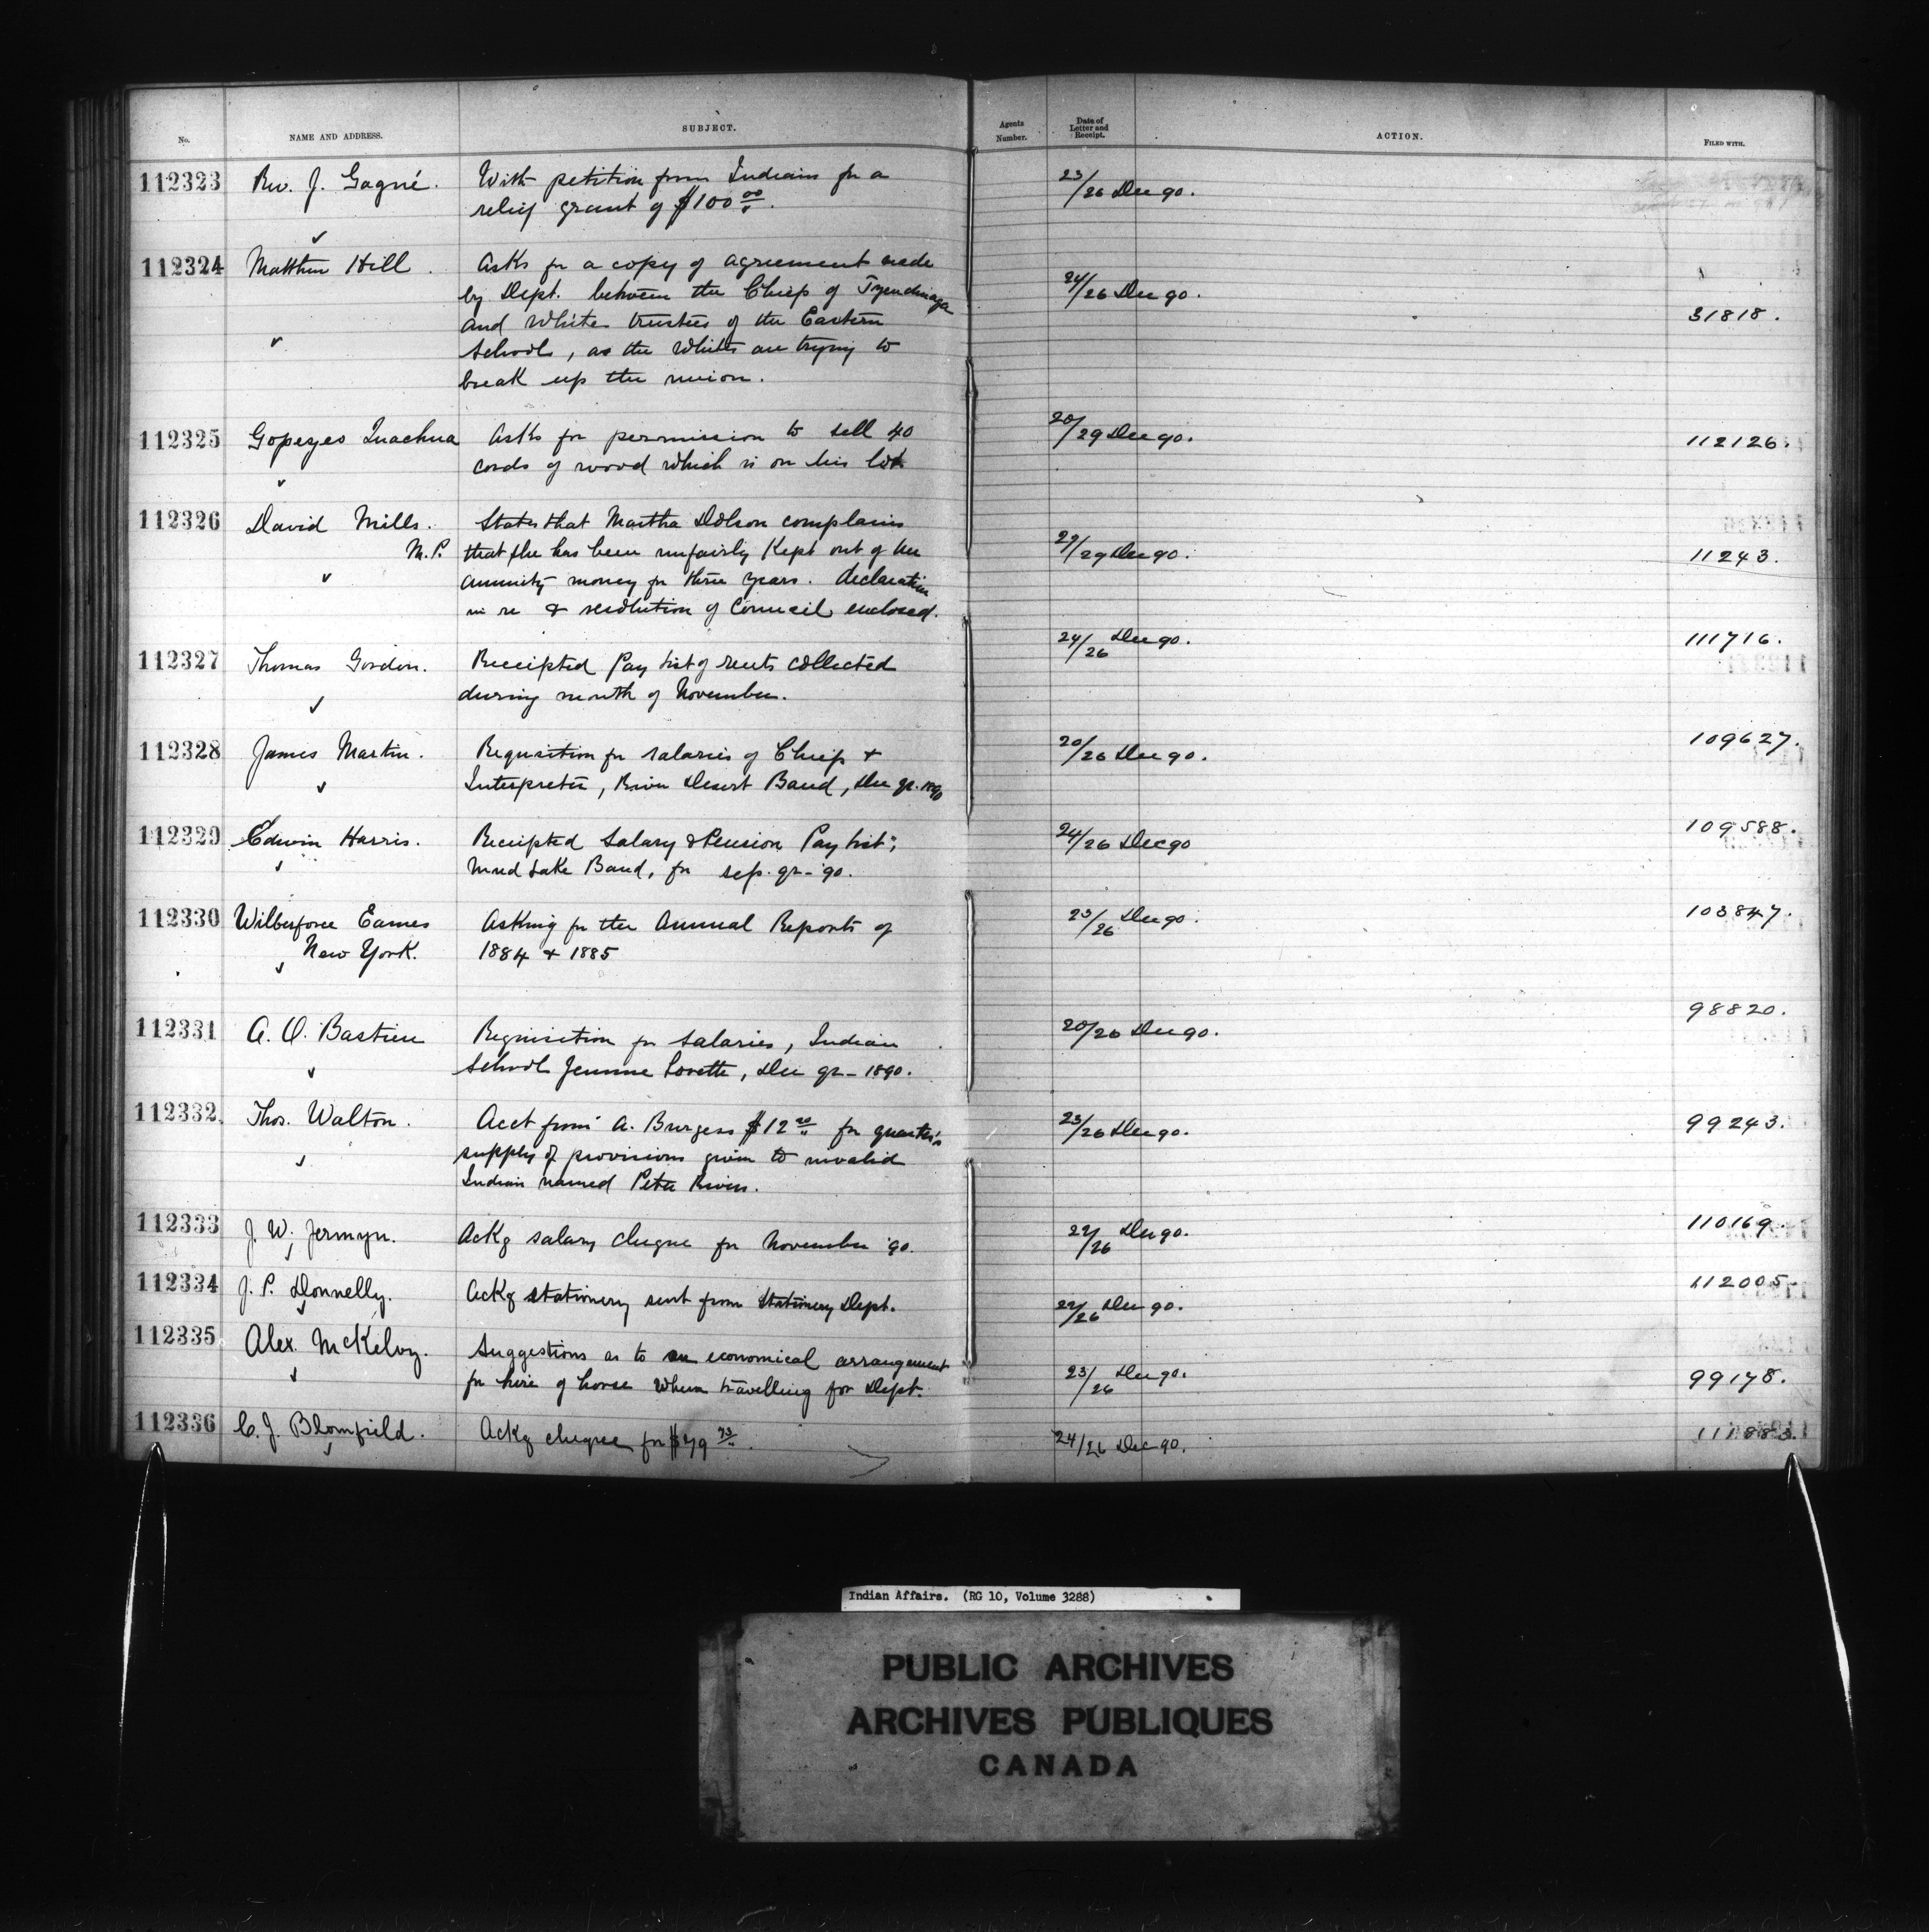 No.
NAME AND ADDRESS.
SUBJECT.
Agents Number.
Date of Letter and Receipt.
ACTION.
FILED WITH.
112323 Rev. J. Gagné. With petition from Indians for a 23/26 Dec 90.
relief grant of $100 00/.
112324 Matthew Hill. Asks for a copy of agreement made
by Dept. between the Chiefs of Tyendinaga 24/26 Dec 90.
and White trustees of the Eastern 31818.
School, as the Whites are trying to
break up the union.
112325 Gopeyes Inachua Asks for permission to sell 40 20/29 Dec 90. 112126.
cords of wood which is on his lot
112326 David Mills. States that Martha Dolson complains
M.P. that she has been unfairly kept out of her 27/29 Dec 90. 11243.
annuity money for three years. declaration
in re & resolution of Council enclosed.
112327 Thomas Gordon. Receipted Pay list of rents collected 24/26 Dec 90. 111716.
during month of November.
112328 James Martin. Requisition for salaries of Chiefs & 20/26 Dec 90. 109627.
Interpreter, River Desert Band, Dec qr. 1890
112329 Edwin Harris. Receipted Salary & Pension Pay list, 24/26 Dec 90 109588.
Mud Lake Band, for sep. qr - '90.
112330 Wilberforce Eames Asking for the Annual Reports of 23/26 Dec 90. 103847.
New York. 1884 & 1885
112331 A. O. Bastien Requisition for salaries, Indian 20/26 Dec 90. 98820.
School Jeunne Lorette, Dec qr - 1890.
112332 Thos. Walton. Acct from A. Burgess $12 for quarter's 23/26 Dec 90. 99243.
supply of provisions given to invalid
Indian named Peter Rivers.
112333 J. W. Jermyn. Ackg salary cheque for November '90. 22/26 Dec 90. 110169.
112334 J. P. Donnelly. Ackg stationery sent from Stationery Dept. 22/26 Dec 90. 112005.
112335 Alex. McKelvy. Suggestions as to an economical arrangement
for hire of horse when travelling for Dept. 23/26 Dec 90. 99178.
112336 C. J. Blomfield. Ackg cheque for $79 73/. 24/26 Dec 90. 111883.
Indian Affairs. (RG 10, Volume 3288)
PUBLIC ARCHIVES
ARCHIVES PUBLIQUES
CANADA